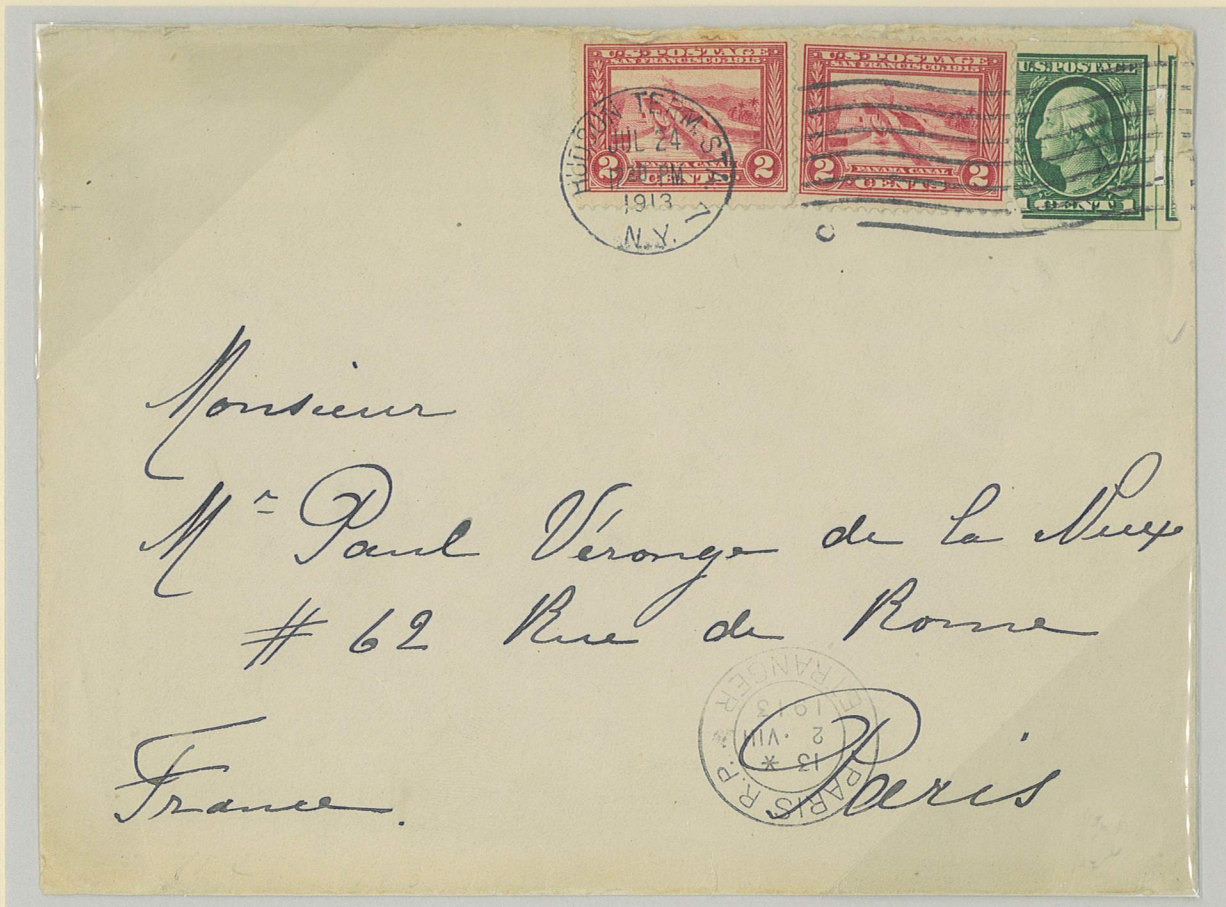 U.S. POSTAGE
SAN FRANCISCO, 1915
PANAMA CANAL
2 CENTS 2
U.S. POSTAGE
SAN FRANCISCO, 1915
PANAMA CANAL
2 CENTS 2
U.S. POSTAGE
1 CENT 1
HUDSON TERM. STA. 7
JUL 24
PM
1913
N.Y.
Monsieur
Mr Paul Véronge de la Nuex
# 62 Rue de Rome
Paris
France.
PARIS R.P. ETRANGER
13 *
2 · VIII
1913